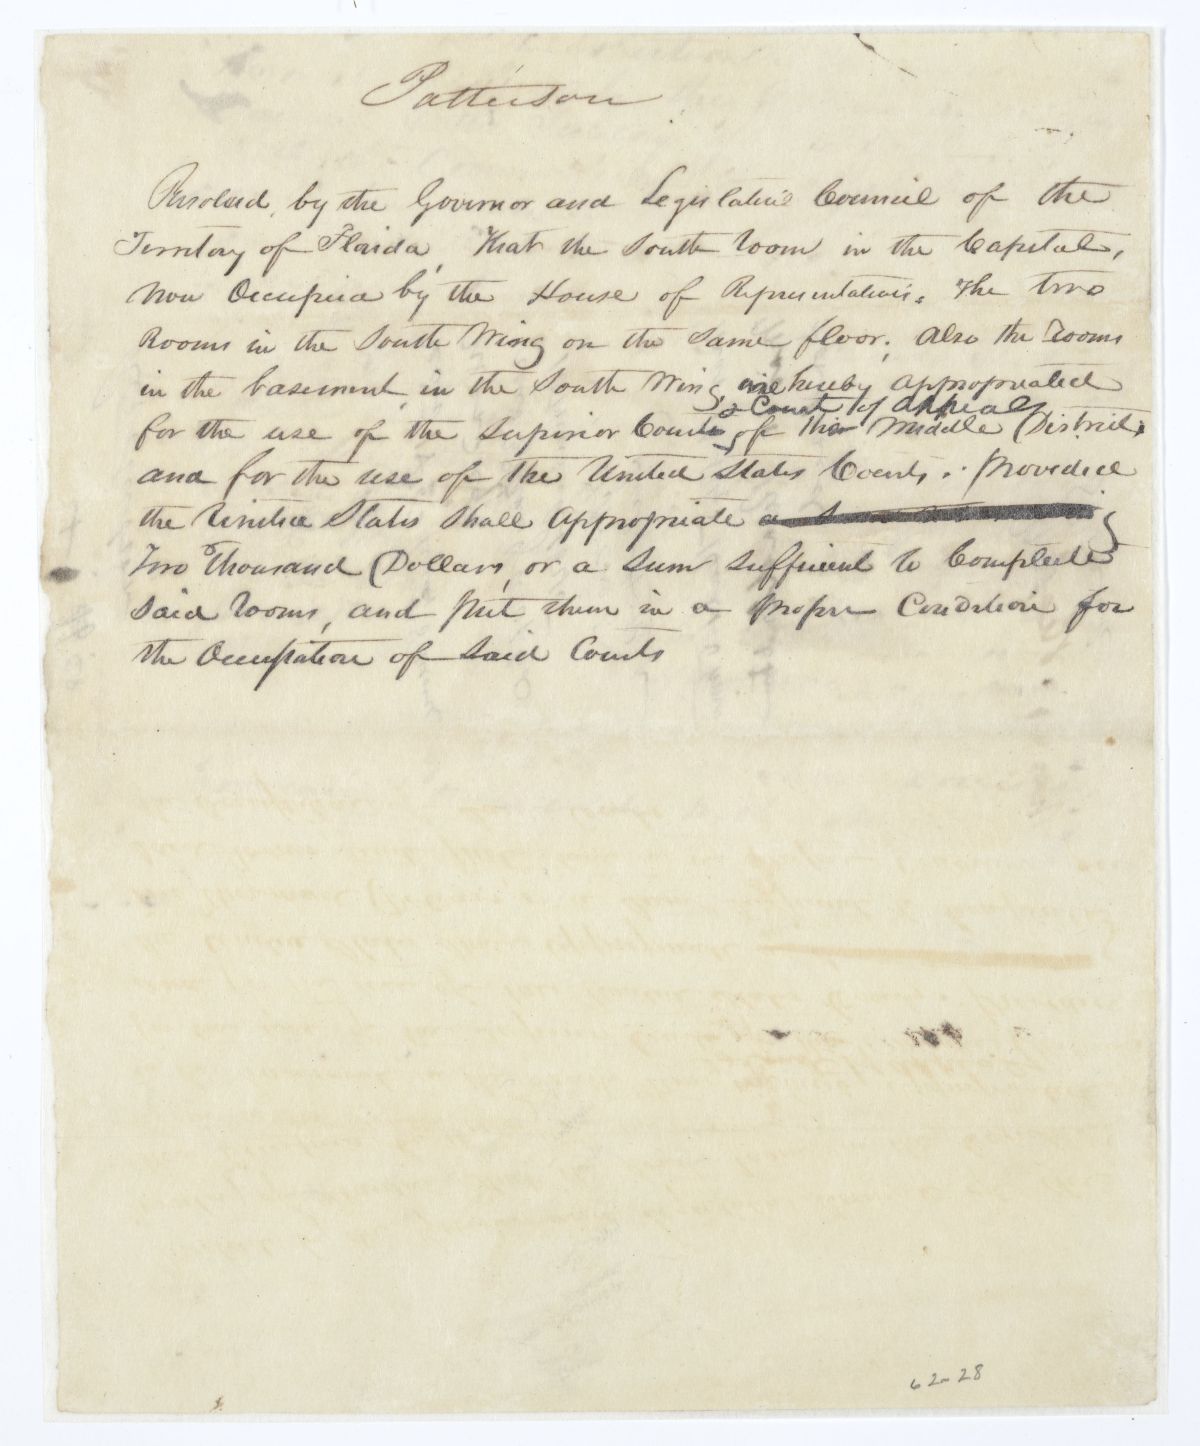 Patterson
Resolved, by the Governor and Legislative Council of the
Territory of Florida, That the South Room in the Capitol,
Now Occupied by the House of Representatives. The two
Rooms in the South Wing on the Same floor, Also the Rooms
in the basement, in the South Wing, are hereby appropriated
& Court of Appeals
for the use of the Superior Courts, of the Middle District,
and for the use of the United States Courts. Provided
the United States Shall Appropriate
Two Thousand Dollars, or a Sum Sufficient to Compleete
Said Rooms, and put them in a proper Condition for
the Occupation of Said Courts
62-28